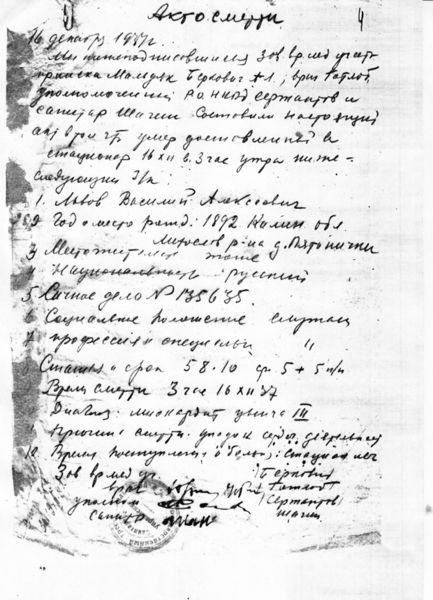 4
Акт о смерти
16 декабря 1937г.
Мы нижеподписавшиеся Зав врмед участ
прииска Мальдяк Беркович А1., врач
уполномоченный РО НКВД Сержантов и
санитар Шагин Составили настоящий
акт в том что умер доставленный в
стационар 16 XII в. 3 час утра ниже-
следующий з/к
1. Львов Василий Алексеевич
2 Год и место рожд: 1892 Калин обл.
р-на д. Пятонички
3 Местожительст тоже
4 Национальность: русский
5 Личное дело № 135635.
6 Социальное положение служащ
7 профессия и специальн "
8 Статья и срок 58.10 ср. 5 + 5 п/п
Время смерти 3 час 16 XII 37
Диагноз: миокардит цынга III
Причина смерти: упадок серд. деятельност
10. Время поступления в больн: стационар
Зав врмед уч. (Беркович)
врач
уполном (Сержантов)
Санитар Шагин